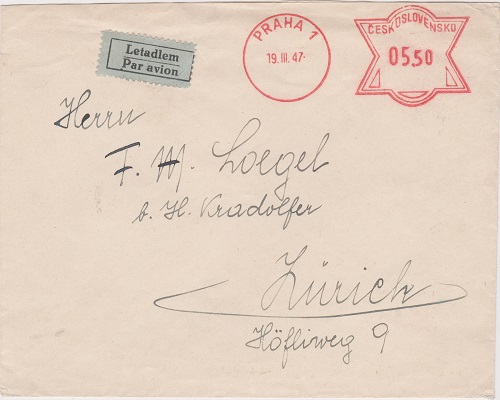 Letadlem
Par avion
PRAHA 1
19.III.47-
ČESKOSLOVENSKO
05,50
Herrn
F. M. Loegel
b. H. Kradolfer
Zürich
Höfliweg 9